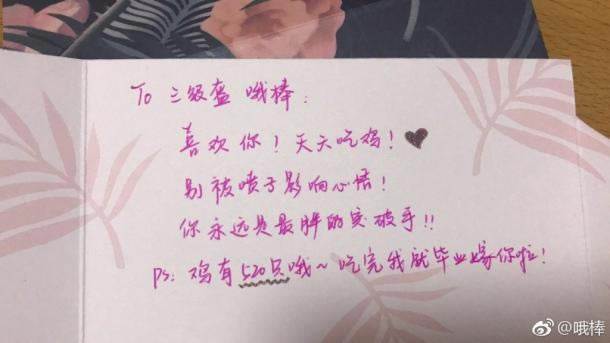 To 三级盔 哦棒：
喜欢你！天天吃鸡！
别被喷子影响心情！
你永远是最胖的突破手!!
Ps: 鸡有520只哦~吃完我就毕业嫁你啦！
@哦棒